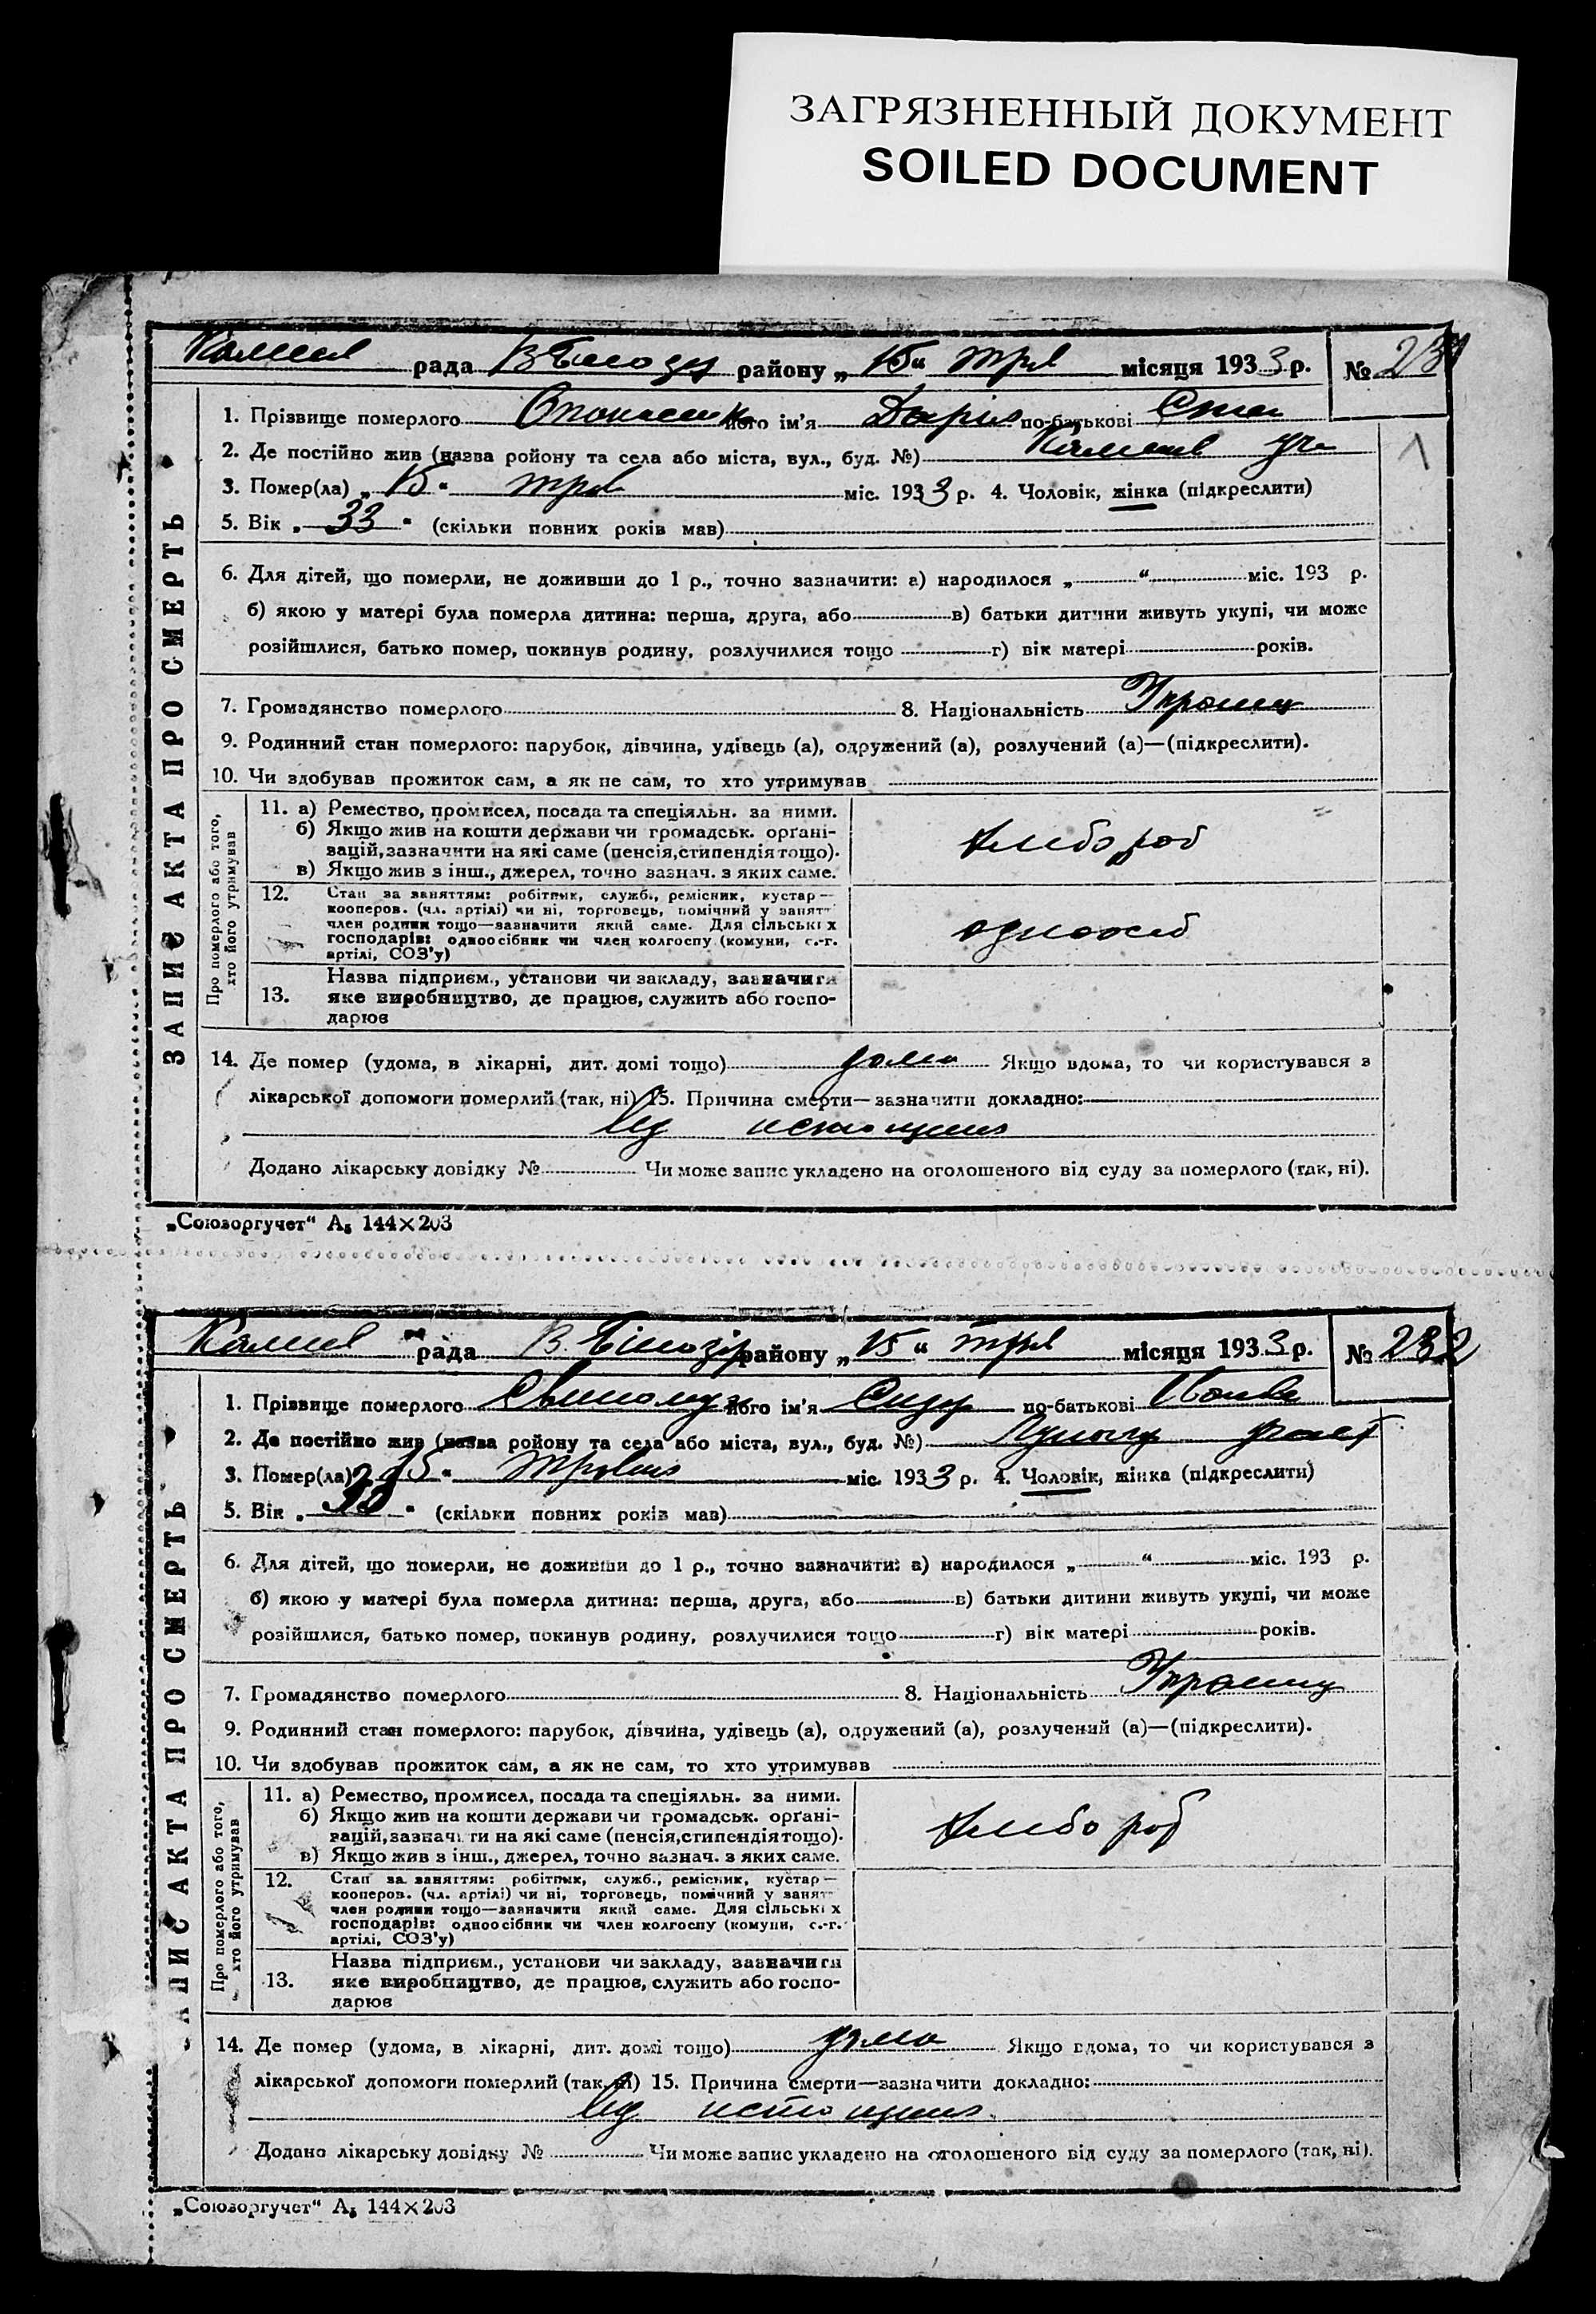 ЗАГРЯЗНЕННЫЙ ДОКУМЕНТ
SOILED DOCUMENT
рада району „ 15 “ трв місяця 193 3 р. № 231
1. Прізвище померлого його ім'я Дарія по-батькові
2. Де постійно жив (назва ройону та села або міста, вул., буд. №)
3. Помер(ла) „ 15 “ трв міс. 193 3 р. 4. Чоловік, жінка (підкреслити)
5. Вік „ 33 “ (скільки повних років мав)
6. Для дітей, що померли, не доживши до 1 р., точно зазначити: а) народилося „ “ міс. 193 р.
б) якою у матері була померла дитина: перша, друга, або в) батьки дитини живуть укупі, чи може
розійшлися, батько помер, покинув родину, розлучилися тощо г) вік матері років.
7. Громадянство померлого 8. Національність Україн
9. Родинний стан померлого: парубок, дівчина, удівець (а), одружений (а), розлучений (а)—(підкреслити).
10. Чи здобував прожиток сам, а як не сам, то хто утримував
11. а) Ремество, промисел, посада та спеціяльн. за ними.
б) Якщо жив на кошти держави чи громадськ. орґані-
зацій, зазначити на які саме (пенсія, стипендія тощо).
в) Якщо жив з інш., джерел, точно зазнач. з яких саме.
хлібороб
12. Стан за заняттям: робітник, служб., ремісник, кустар—
кооперов. (чл. артілі) чи ні, торговець, помічний у занят
член родини тощо—зазначити який саме. Для сільських
господарів: одноосібник чи член колгоспу (комуни, с.-г.
артілі, СОЗ'у)
одноосіб
13. Назва підприєм., установи чи закладу, зазначити
яке виробництво, де працює, служить або госпо-
дарює
14. Де помер (удома, в лікарні, дит. домі тощо) дома Якщо вдома, то чи користувався з
лікарської допомоги померлий (так, ні) 15. Причина смерти—зазначити докладно:
від истощения
Додано лікарську довідку № Чи може запис укладено на оголошеного від суду за померлого (так, ні).
ЗАПИС АКТА ПРО СМЕРТЬ
Про померлого або того,
хто його утримував
„Союзоргучет“ А5 144×203
рада В. Білозір району „ 15 “ трв місяця 193 3 р. № 232
1. Прізвище померлого його ім'я Сидір по-батькові
2. Де постійно жив (назва ройону та села або міста, вул., буд. №)
3. Помер(ла) „ 15 “ травня міс. 193 3 р. 4. Чоловік, жінка (підкреслити)
5. Вік „ “ (скільки повних років мав)
6. Для дітей, що померли, не доживши до 1 р., точно зазначити: а) народилося „ “ міс. 193 р.
б) якою у матері була померла дитина: перша, друга, або в) батьки дитини живуть укупі, чи може
розійшлися, батько помер, покинув родину, розлучилися тощо г) вік матері років.
7. Громадянство померлого 8. Національність Україн
9. Родинний стан померлого: парубок, дівчина, удівець (а), одружений (а), розлучений (а)—(підкреслити).
10. Чи здобував прожиток сам, а як не сам, то хто утримував
11. а) Ремество, промисел, посада та спеціяльн. за ними.
б) Якщо жив на кошти держави чи громадськ. орґані-
зацій, зазначити на які саме (пенсія, стипендія тощо).
в) Якщо жив з інш., джерел, точно зазнач. з яких саме.
хлібороб
12. Стан за заняттям: робітник, служб., ремісник, кустар—
кооперов. (чл. артілі) чи ні, торговець, помічний у занят
член родини тощо—зазначити який саме. Для сільських
господарів: одноосібник чи член колгоспу (комуни, с.-г.
артілі, СОЗ'у)
13. Назва підприєм., установи чи закладу, зазначити
яке виробництво, де працює, служить або госпо-
дарює
14. Де помер (удома, в лікарні, дит. домі тощо) дома Якщо вдома, то чи користувався з
лікарської допомоги померлий (так, ні) 15. Причина смерти—зазначити докладно:
від истощения
Додано лікарську довідку № Чи може запис укладено на оголошеного від суду за померлого (так, ні).
ЗАПИС АКТА ПРО СМЕРТЬ
Про померлого або того,
хто його утримував
„Союзоргучет“ А5 144×203